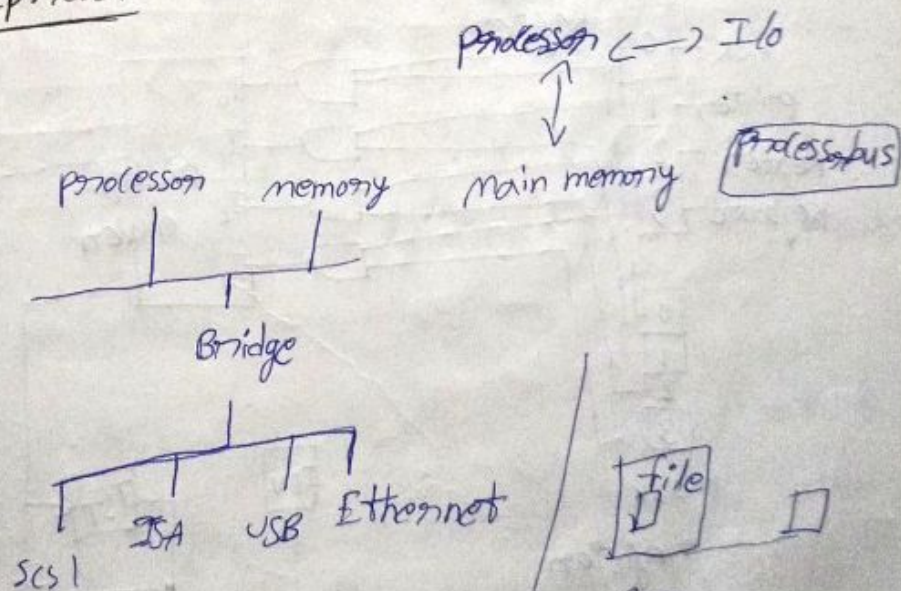 processor <—> I/o
processor memory
Main memory
processor bus
Bridge
SCSI ISA USB Ethernet
file